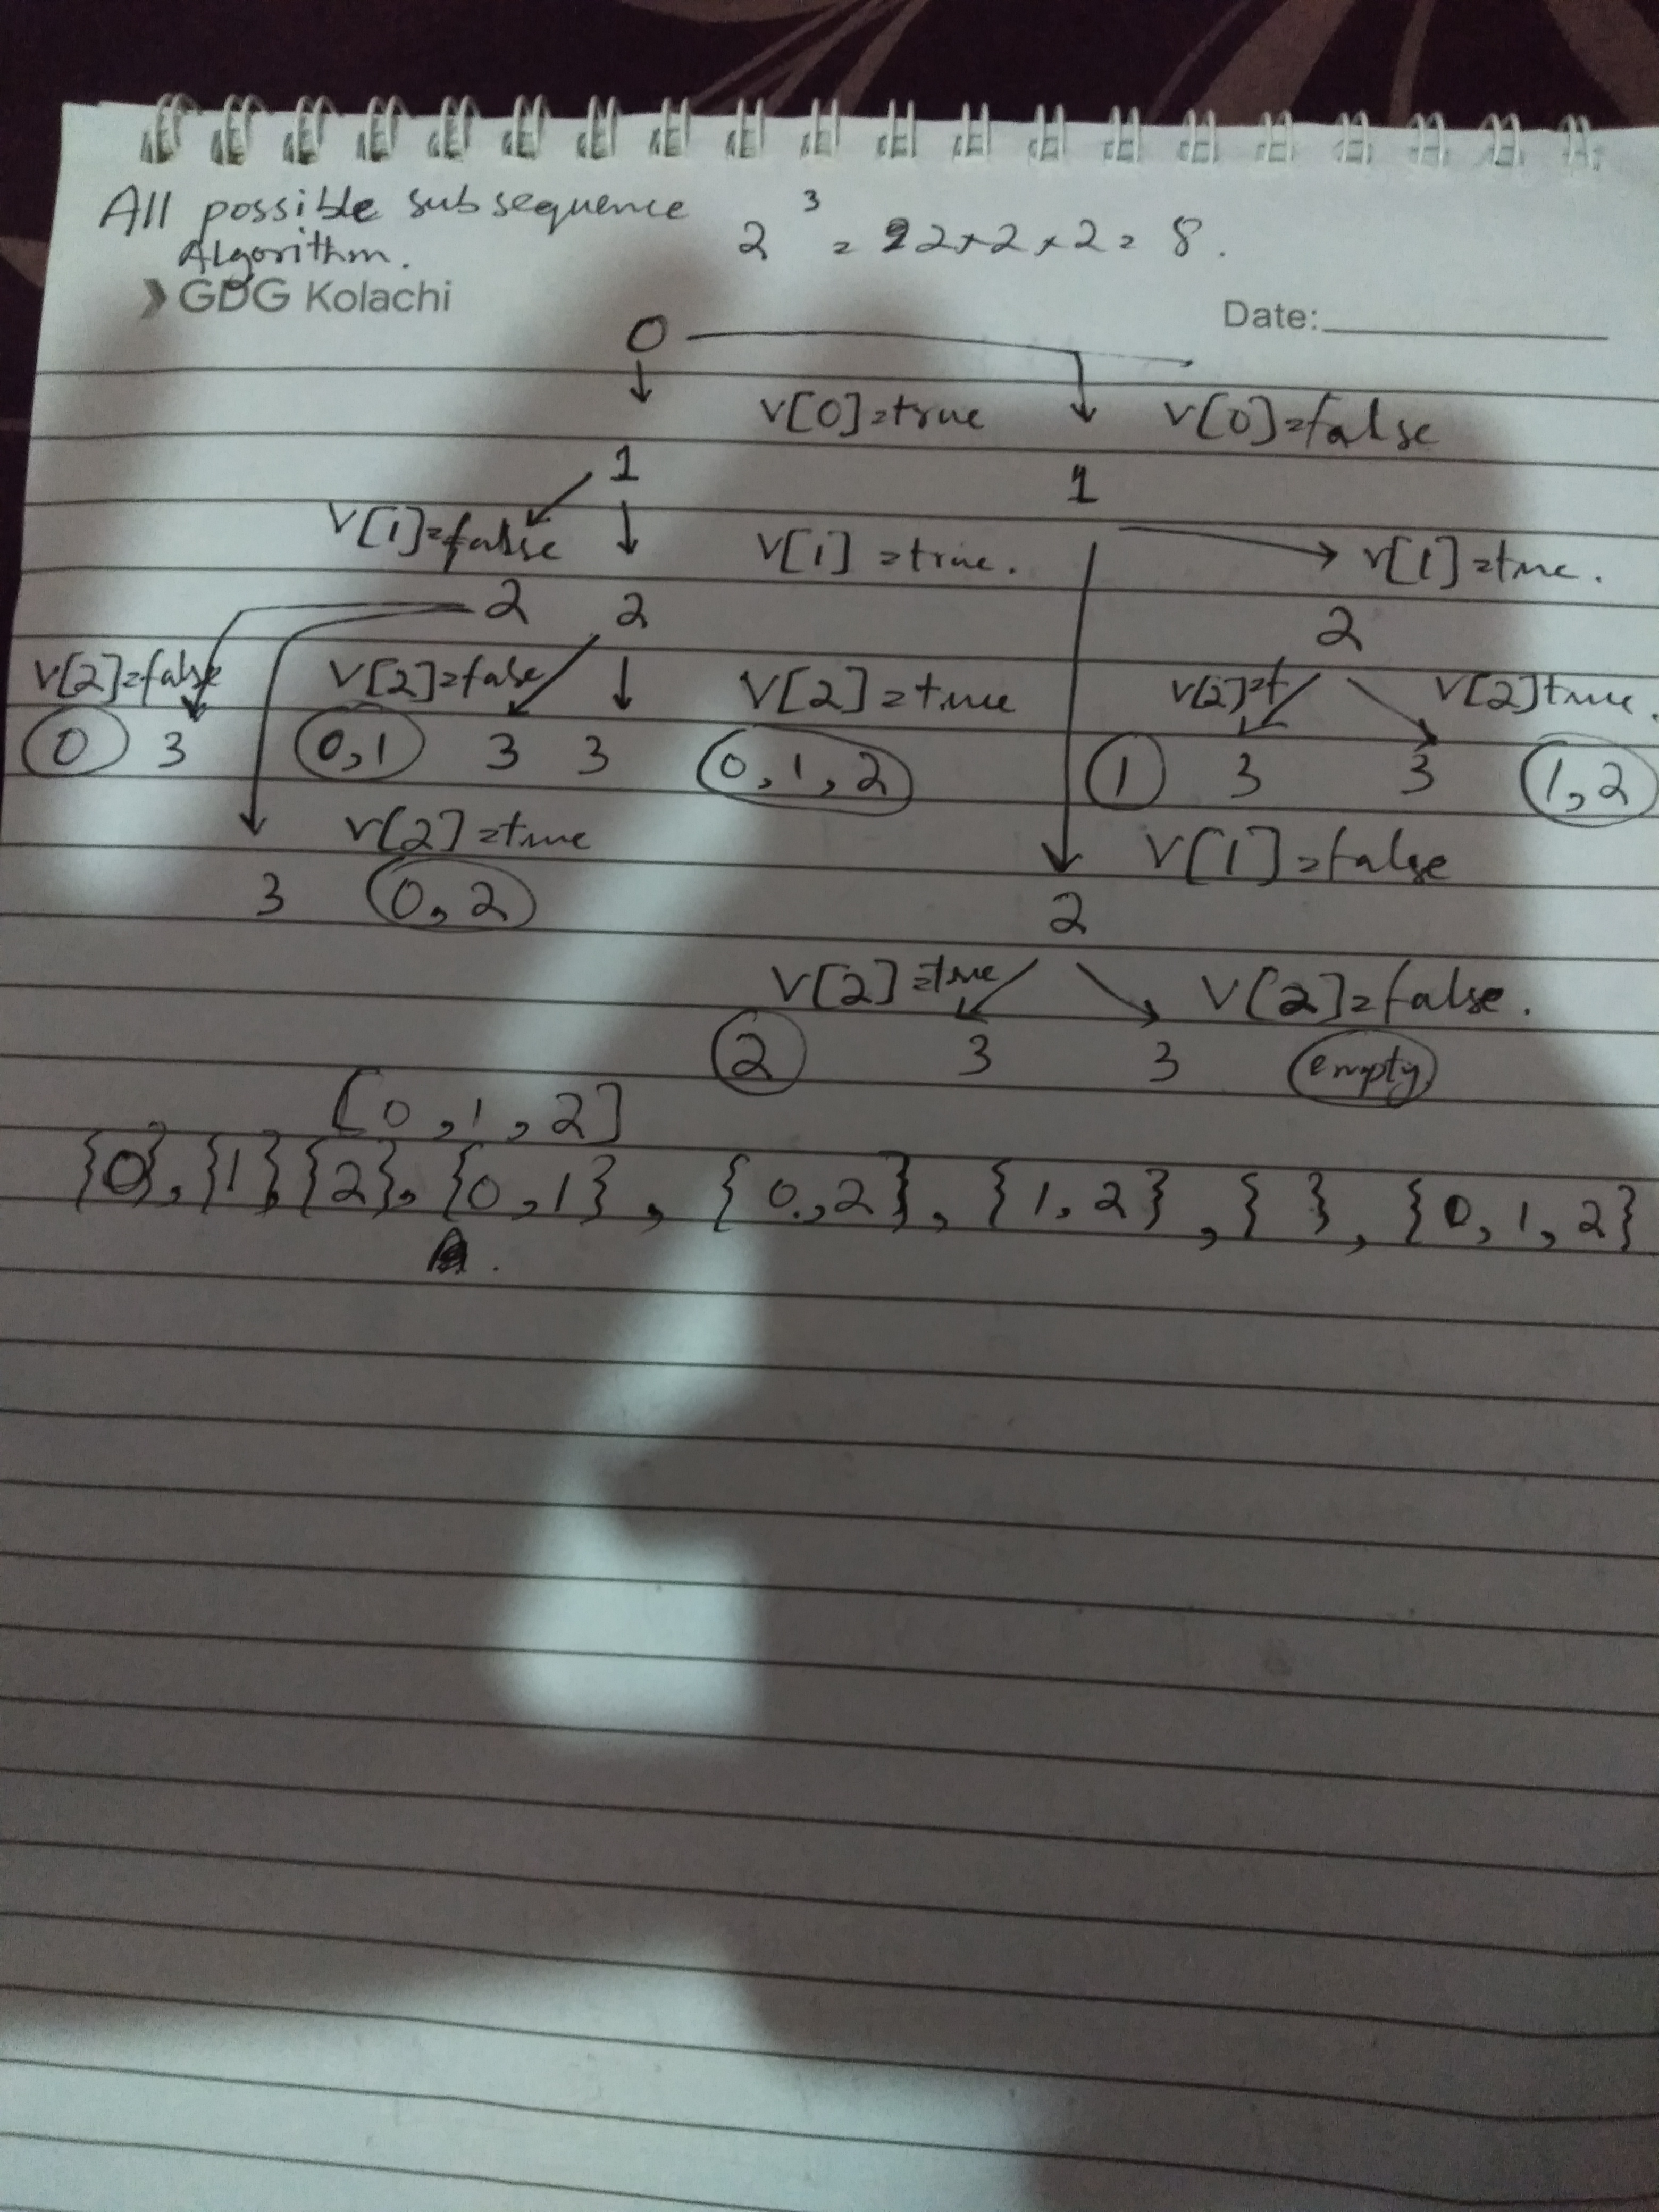 All possible subsequence 2³ = 22×2×2 = 8.
Algorithm.
GDG Kolachi
Date:
0
v[0]=true v[0]=false
1 1
v[1]=false v[1]=true. v[1]=true.
2 2 2
v[2]=false v[2]=false v[2]=true v[2]=f v[2]true.
0 3 0,1 3 3 0,1,2 1 3 3 1,2
v[2]=true v[1]=false
3 0,2 2
v[2]=true v[2]=false.
2 3 3 empty
[0,1,2]
{0},{1}{2},{0,1},{0,2},{1,2},{ },{0,1,2}